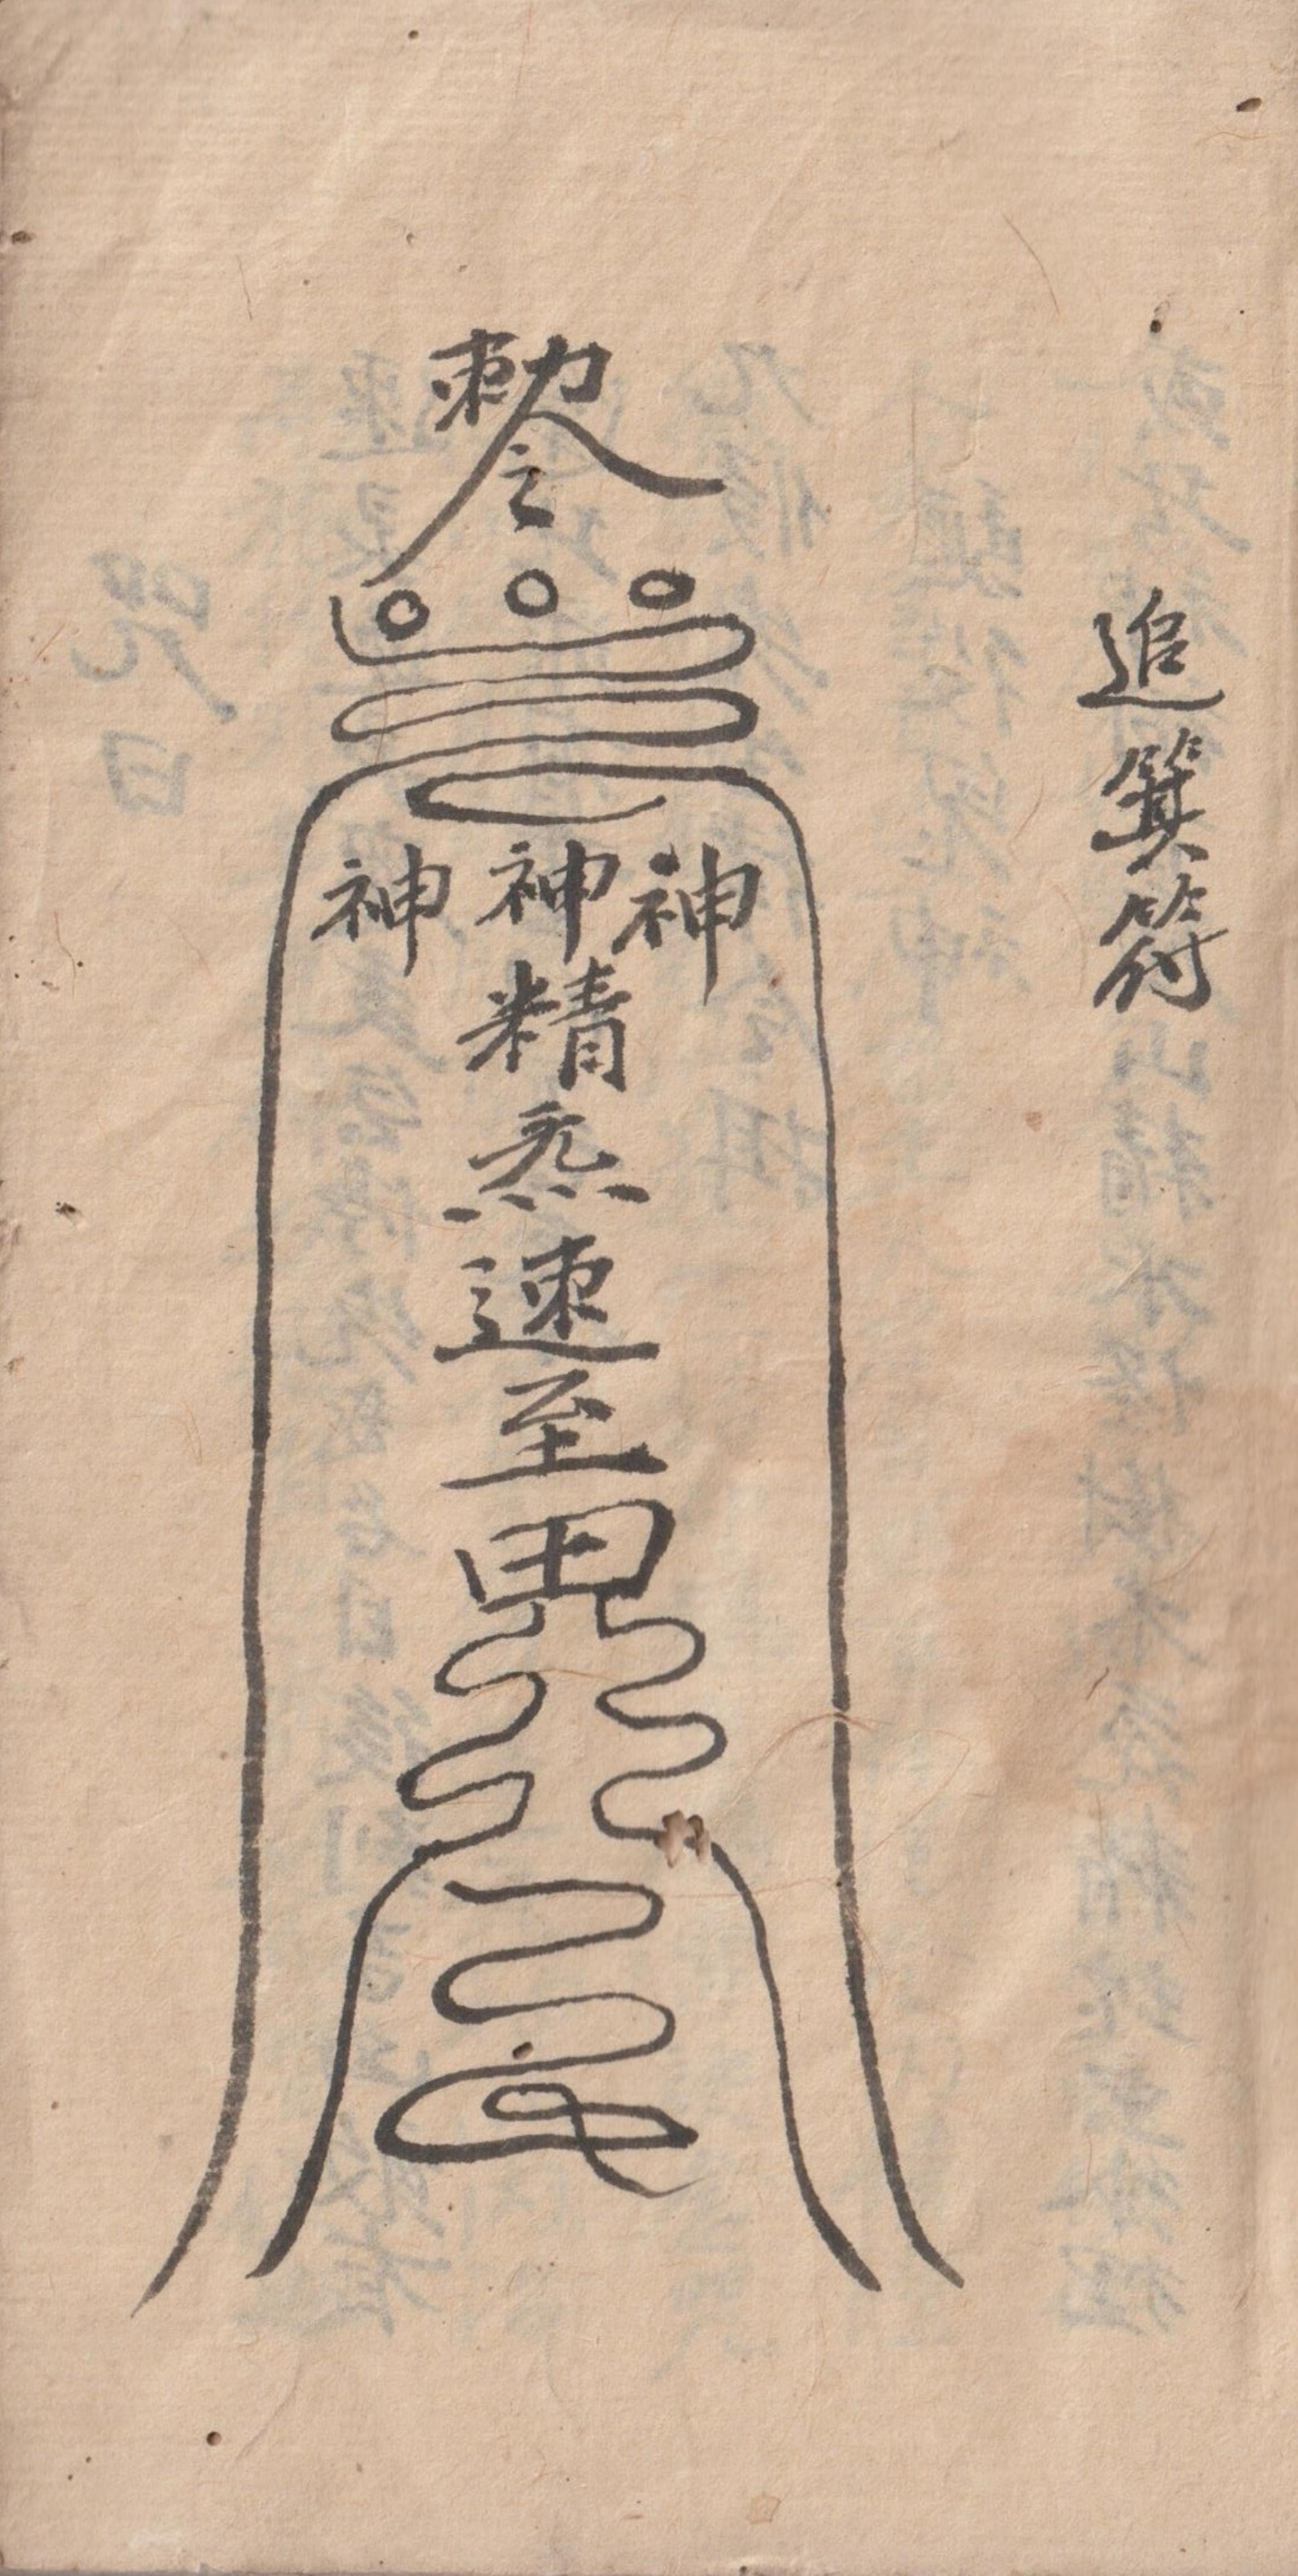 追箕符
勅令
神神神
精炁速至